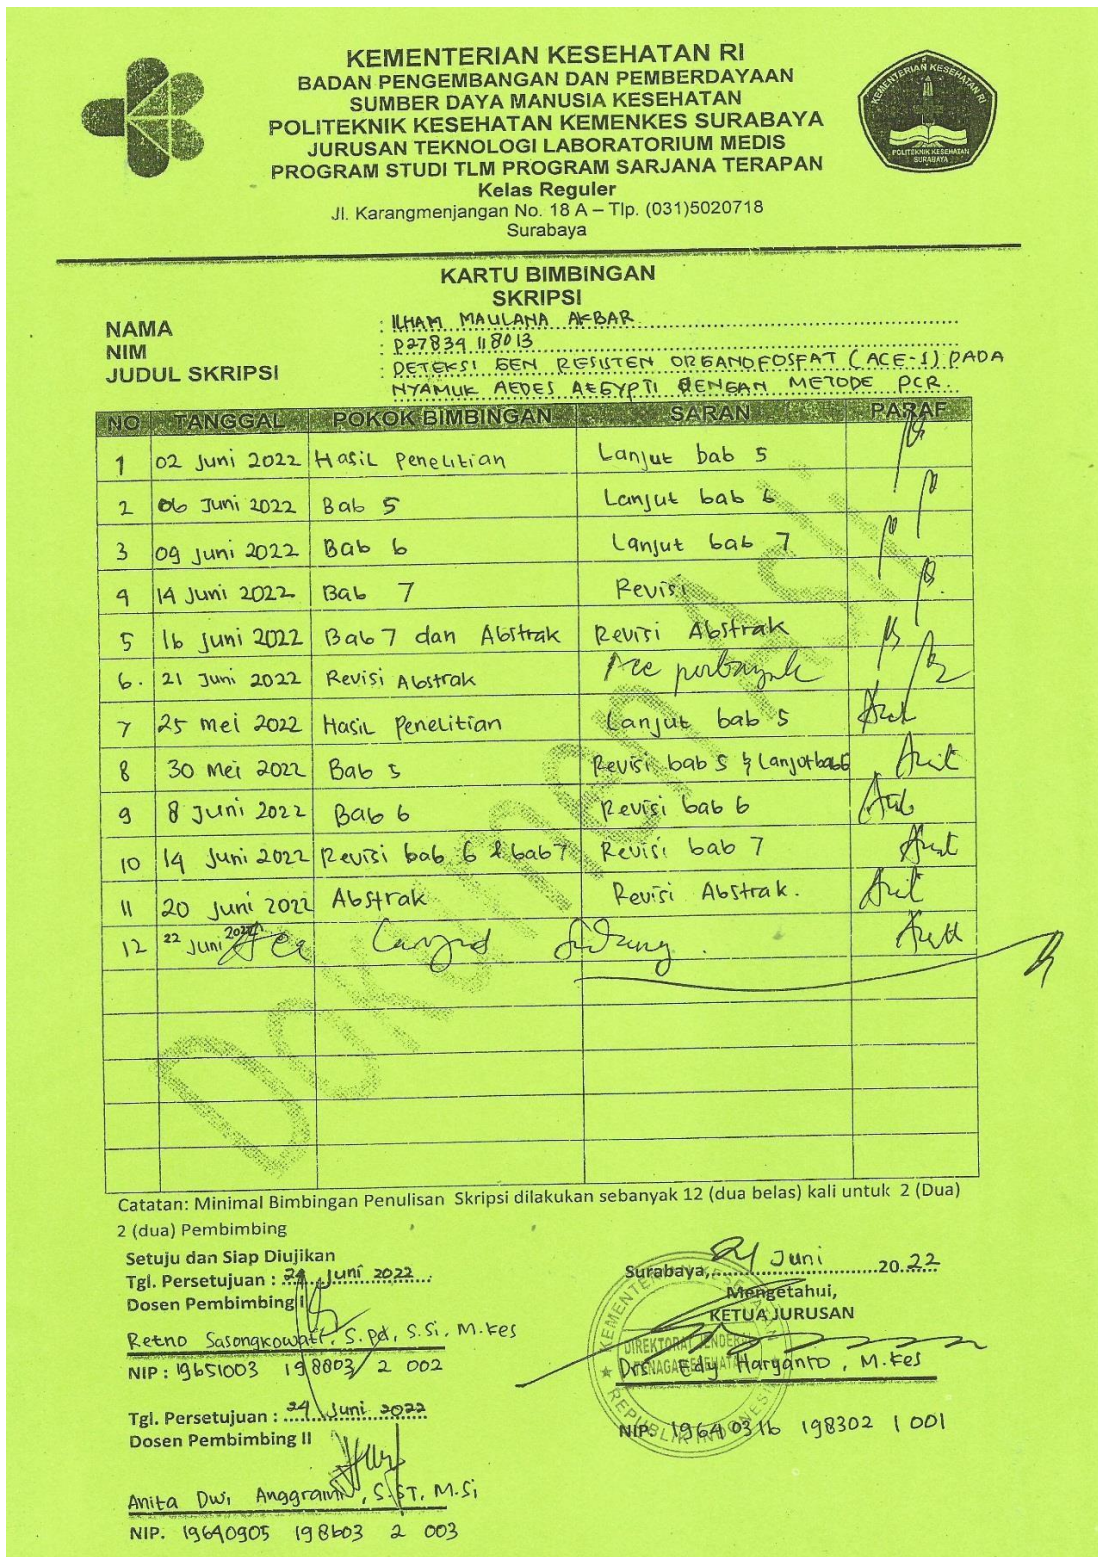 KEMENTERIAN KESEHATAN RI
BADAN PENGEMBANGAN DAN PEMBERDAYAAN
SUMBER DAYA MANUSIA KESEHATAN
POLITEKNIK KESEHATAN KEMENKES SURABAYA
JURUSAN TEKNOLOGI LABORATORIUM MEDIS
PROGRAM STUDI TLM PROGRAM SARJANA TERAPAN
Kelas Reguler
Jl. Karangmenjangan No. 18 A – Tlp. (031)5020718
Surabaya
KEMENTERIAN KESEHATAN RI
POLITEKNIK KESEHATAN
SURABAYA
KARTU BIMBINGAN
SKRIPSI
NAMA : ILHAM MAULANA AKBAR
NIM : P27834118013
JUDUL SKRIPSI : DETEKSI GEN RESISTEN ORGANOFOSFAT (ACE-1) PADA
NYAMUK AEDES AEGYPTI DENGAN METODE PCR
NO TANGGAL POKOK BIMBINGAN SARAN PARAF
1 02 Juni 2022 Hasil Penelitian Lanjut bab 5
2 06 Juni 2022 Bab 5 Lanjut bab 6
3 09 Juni 2022 Bab 6 Lanjut bab 7
4 14 Juni 2022 Bab 7 Revisi
5 16 Juni 2022 Bab 7 dan Abstrak Revisi Abstrak
6. 21 Juni 2022 Revisi Abstrak Acc perbanyak
7 25 Mei 2022 Hasil Penelitian Lanjut bab 5
8 30 Mei 2022 Bab 5 Revisi bab 5 & Lanjut bab 6
9 8 Juni 2022 Bab 6 Revisi bab 6
10 14 Juni 2022 Revisi bab 6 & bab 7 Revisi bab 7
11 20 Juni 2022 Abstrak Revisi Abstrak.
12 22 Juni 2022 Acc Lanjut Sidang.
Dokumen Asli
Catatan: Minimal Bimbingan Penulisan Skripsi dilakukan sebanyak 12 (dua belas) kali untuk 2 (Dua)
2 (dua) Pembimbing
Setuju dan Siap Diujikan
Tgl. Persetujuan : 24 Juni 2022
Dosen Pembimbing I
Retno Sasongkowati. S.Pd, S.Si, M.Kes
NIP : 19651003 198803 2 002
Tgl. Persetujuan : 24 Juni 2022
Dosen Pembimbing II
Anita Dwi Anggraini, S.ST, M.Si
NIP. 19640905 198603 2 003
Surabaya, 24 Juni 2022
Mengetahui,
KETUA JURUSAN
Drs. Edy Haryanto, M.Kes
NIP. 19640316 198302 1 001
KEMENTERIAN KESEHATAN
DIREKTORAT JENDERAL
TENAGA KESEHATAN
REPUBLIK INDONESIA